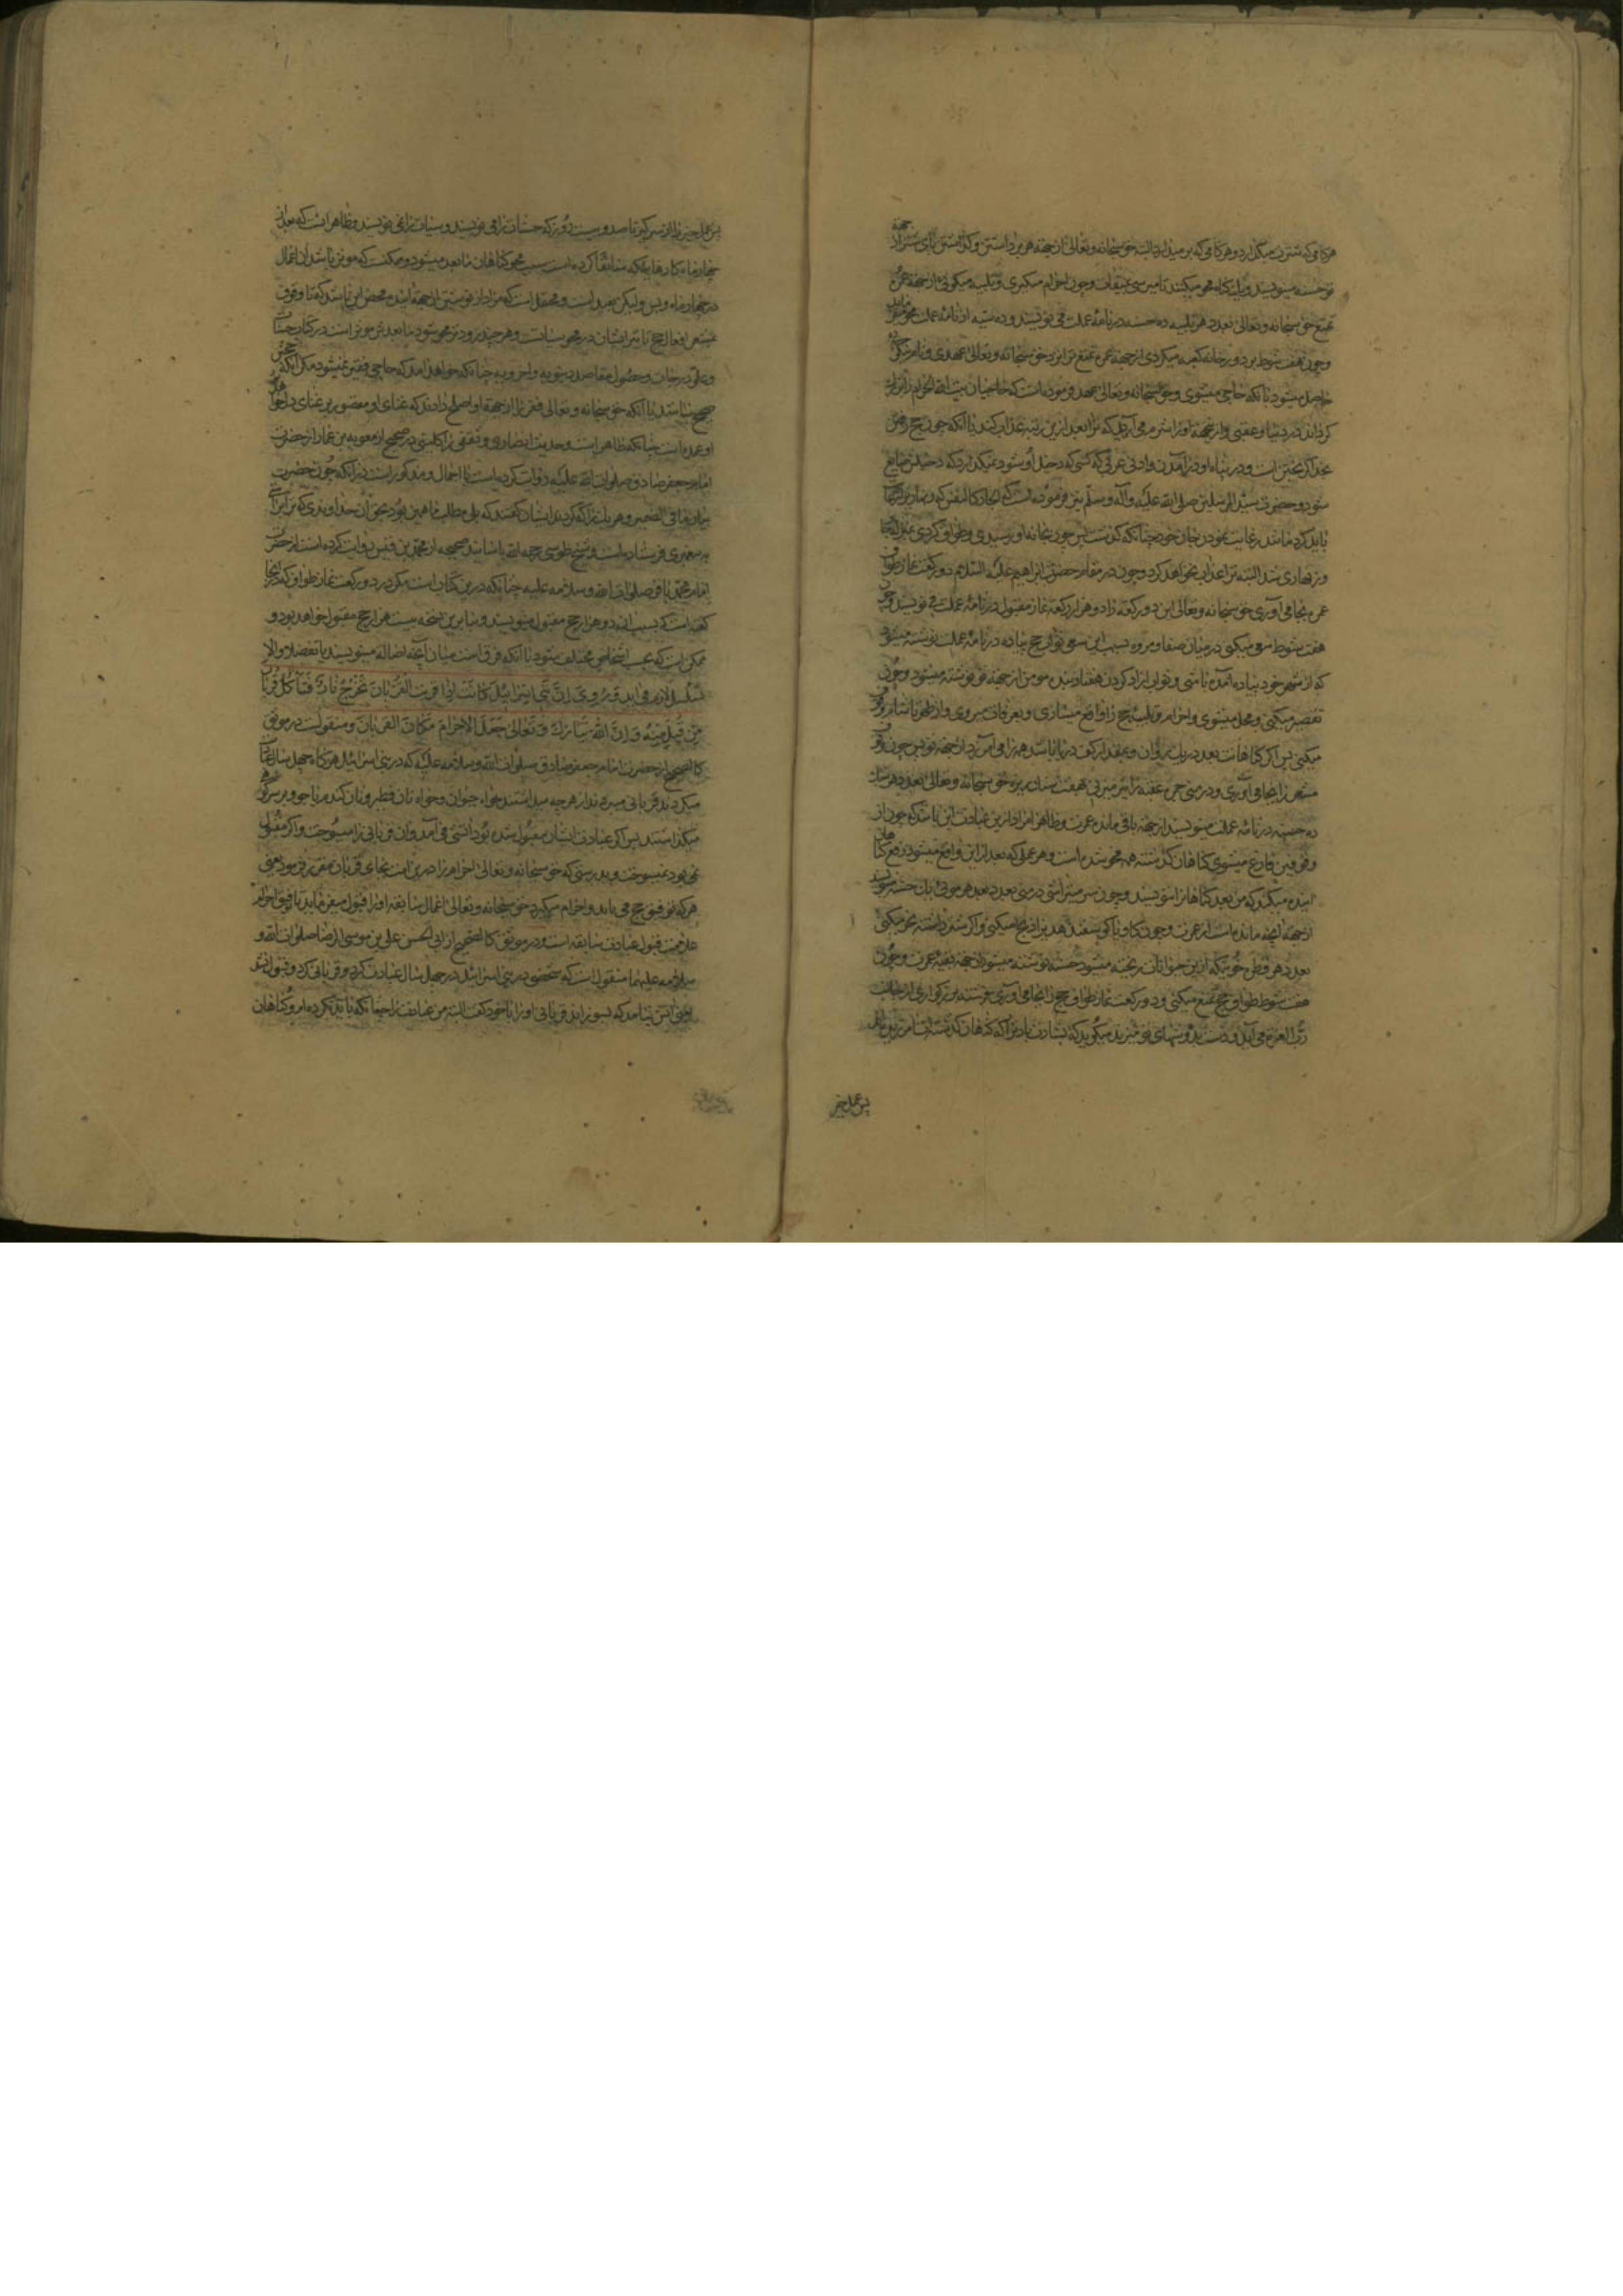 هر کامی که شترت میکذارد و هر کامی که بر میدارد البته حق سبحانه و تعالی از جهة هر برداشتن و کذاشتن پای شتر از جهة
تو حسنه مینویسند و یک کناه محو میکنند تا میرسی بمیقات و چون احرام میکیری و تلبیه میکوئی از جهة عمره
تمتع حق سبحانه و تعالی بعدد هر تلبیه ده حسنه در نامهٔ عملت می نویسند و ده سیئه از نامهٔ عملت محو میفرماید
و چون هفت شوط بر دور خانه کعبه میکردی از جهة عمره تمتع ترا نزد حق سبحانه و تعالی عهدی و نام نیکی
حاصل میشود بآنکه حاجی میشوی و حق سبحانه و تعالی عهد فرموده است که حاجیان بیت الله الحرام را بزرک
کرداند در دنیا و عقبی و از جهة او را شرم می آید که ترا بعد ازین رتبه عذاب کند با آنکه چون حج رفتن
بخدا کریختن است و در پناه او در آمدن و ادنی عربی که کسی که دخیل او شود نمیکذارد که دخیلش ضایع
شود و حضرت سید المرسلین صلی الله علیه و آله و سلم نیز فرموده است که
باید کرد مانند رعایت نمودن جان خود چنانکه کذشت پس چون بخانه او رسیدی و طواف کردی
و زنهاری شد البته ترا عذاب نخواهد کرد و چون در مقام حضرت ابراهیم علیه السلام دو رکعت نماز طواف
عمره بجا می آوری حق سبحانه و تعالی این دو رکعة را دو هزار رکعة نماز مقبول در نامهٔ عملت می نویسند و چون
هفت شوط سعی میکنی در میان صفا و مروه بسبب این سعی ثواب حج پیاده در نامهٔ عملت نوشته میشود
که از شهر خود پیاده آمده باشی و ثواب آزاد کردن هفتاد بنده مومن از جهة تو نوشته میشود و چون
تقصیر میکنی و محل میشوی و احرام و تلبیهٔ حج را واقع میسازی و بعرفات میروی و از ظهر تا شام وقوف
میکنی پس اکر کناهانت بعدد ریک روان و بمقدار کف دریا باشد همه را می آمرزد از جهة تو پس چون وقوف
مشعر را بجا می آوری و در منی جمره عقبه را میزنی بهفت سنک ریزه حق سبحانه و تعالی بعدد هر سنک
ده حسنه در نامهٔ عملت مینویسند از جهة باقی مانده عمرت و ظاهرا مراد ازین عبادت این باشد که چون از
وقوفین فارغ میشوی کناهان کذشته همه محو شده است و هر عملی که بعد از این واقع میشود رفع کناهان
آینده میکند که من بعد کناهانرا ننویسند و چون سر میتراشی در منی بعد هر موئی بآن حسنه مینویسند
از جهة آنچه مانده است از عمرت و چون کاو یا کوسفند هدی را ذبح میکنی و اکر شتر داشته نحر میکنی
بعدد هر قطره خونیکه از این حیوانات ریخته میشود حسنه نوشته میشود از جهة بقیه عمرت و چون
هفت شوط طواف حج تمتع میکنی و دو رکعت نماز طواف حج را بجا می آوری فرشته بزرکواری از جانب
رب العزه می آید و دست بر دوشهای تو میزند و میکوید که بشارت باد ترا که کناهان کذشته‌ات آمرزیده شد
پس عمل خیر
پس عمل خیر را از سر کیر تا صد و بیست روز که حسنات ترا می نویسند و سیئات ترا نمی نویسند و ظاهر است که بعد از
چهار ماه کارهایی که سابقا کرده است سبب محو کناهان ما بعد میشود و ممکنست که موثر باشد آن اعمال
در چهار ماه و بس و لیکن بعید است و محتمل است که مراد از نوشتن از جهة آینده محض این باشد که تا وقوف
مشعر افعال حج تاثیر ایشان در محو سیئات و هر چند زودتر محو شود ما بعدش موثر است در کتابت حسنات
و علو درجات و حصول مقاصد دنیویه و اخرویه چنانکه خواهد آمد که حاجی فقیر نمیشود مکر آنکه حجش
صحیح نباشد یا آنکه حق سبحانه و تعالی فقر را از جهة او اصلح داند که غنای او مقصور بر غنای دل احوال
او عمده است چنانکه ظاهر است و حدیث انصاری و ثقفی را کلینی در صحیح از معویه بن عمار از حضرت
امام جعفر صادق صلوات الله علیه روایت کرده است با اجمال و مذکور است در آنکه چون حضرت
بیان ما فی الضمیر هر یک را که کردند ایشان کفتند که بلی مطلب ما همین بود بحق آن خداوندی که ترا براستی
به پیغمبری فرستاده است و شیخ طوسی رحمه الله باسانید صحیحه از محمد بن قیس روایت کرده است از حضرت
امام محمد باقر صلوات الله و سلامه علیه چنانکه درین کتاب است مکر در دو رکعت نماز طواف که آنجا
کفته است که بسبب آن دو هزار حج مقبول مینویسند و بنا برین نسخه بیست هزار حج مقبول خواهد بود و
ممکن است که بحسب اشخاص مختلف شود با آنکه فرق است میان آنچه اصالة مینویسند یا تفضلا و الا
تسلسل لازم می آید وَ رُوِیَ اِنَّ بَنی اِسْرائیلَ کانَتْ اِذا قَرَّبَتِ الْقُرْبانَ تَخْرُجُ نارٌ فَتَأْکُلُ قُرْبانَ
مَنْ قُبِلَ مِنْهُ وَ اِنَّ اللّهَ تَبارَکَ وَ تَعالی جَعَلَ الْاِحْرامَ مَکانَ الْقُرْبانِ و منقولست در موثق
کالصحیح از حضرت امام جعفر صادق صلوات الله و سلامه علیه که در بنی اسرائیل هر کاه چهل سال عبادت
میکردند قربانی میبردند از هر چه میداشتند خواه حیوان و خواه نان فطیر و نان کندم یا جو و بر سر کوه
میکذاشتند پس اکر عبادت ایشان مقبول شده بود آتشی می آمد و آن قربانی را میسوخت و اکر مقبول
نمی بود نمیسوخت و بدرستی که حق سبحانه و تعالی احرام را درین امت بجای قربان مقرر فرمود یعنی
هر که توفیق حج می یابد و احرام میکیرد حق سبحانه و تعالی اعمال سابقه او را قبول میفرماید یا توفیق احرام
علامت قبول عبادت سابقه است و در موثق کالصحیح از ابی الحسن علی بن موسی الرضا صلوات الله و
سلامه علیهما منقول است که شخصی در بنی اسرائیل در چهل سال عبادت کرد و قربانی کرد و قبول نشد
یعنی آتش نیامد که بسوزاند قربانی او را با خود کفت البته من عبادت را چنانکه باید نکرده ام و کناهان